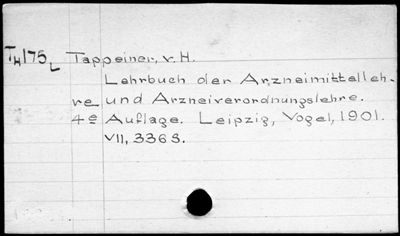 TH175L Tappeiner, v. H.
Lehrbuch der Arzneimittelleh-
re und Arzneiverordnungslehre.
4e Auflage. Leipzig, Vogel, 1901.
VII, 336 S.